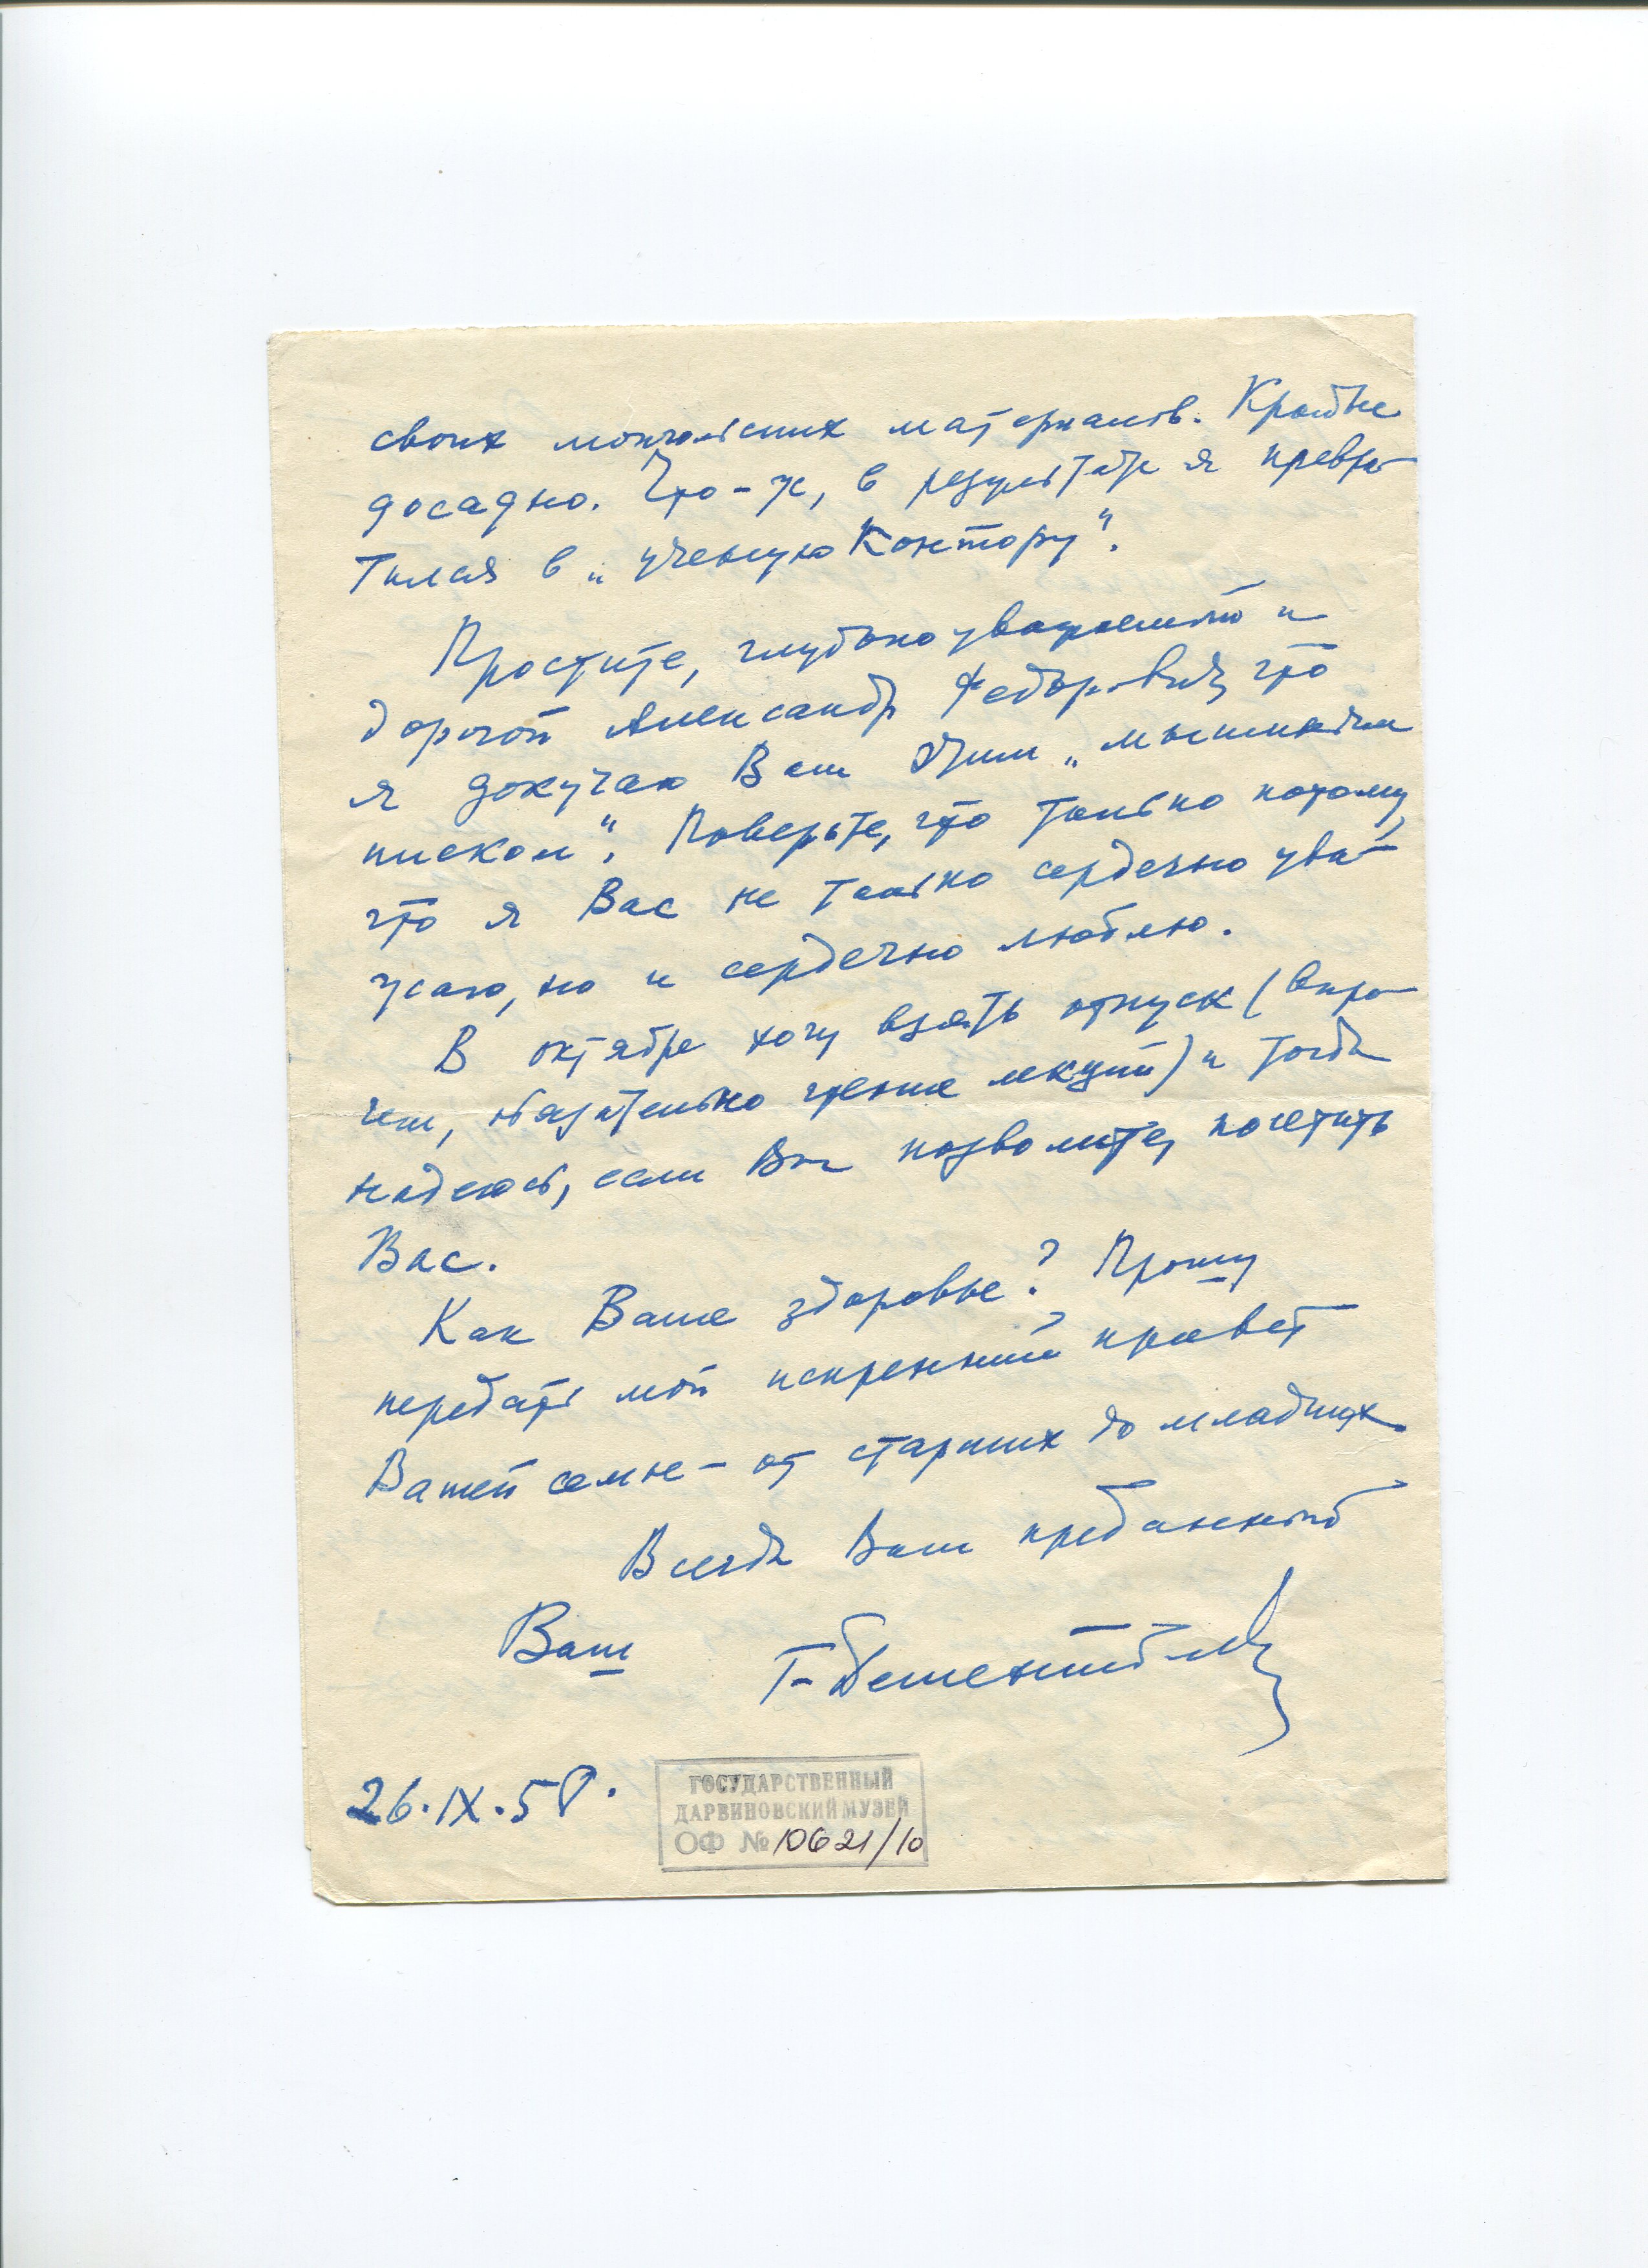 своих монгольских материалов. Крайне
досадно. Что-ж, в результате я превра-
тился в „ученую контору".
Простите, глубокоуважаемый и
дорогой Александр Федорович, что
я докучаю Вам этим „мышиным
писком". Поверьте, что только потому,
что я Вас не только сердечно ува-
жаю, но и сердечно люблю.
В октябре хочу взять отпуск (впро-
чем, обязательно чтение лекций) и тогда
надеюсь, если Вы позволите, посетить
Вас.
Как Ваше здоровье? Прошу
передать мой искренний привет
Вашей семье - от старших до младших
Всегда Вам преданный
Ваш Г. Дементьев
26.IX.58.
ГОСУДАРСТВЕННЫЙ
ДАРВИНОВСКИЙ МУЗЕЙ
ОФ № 10621/10